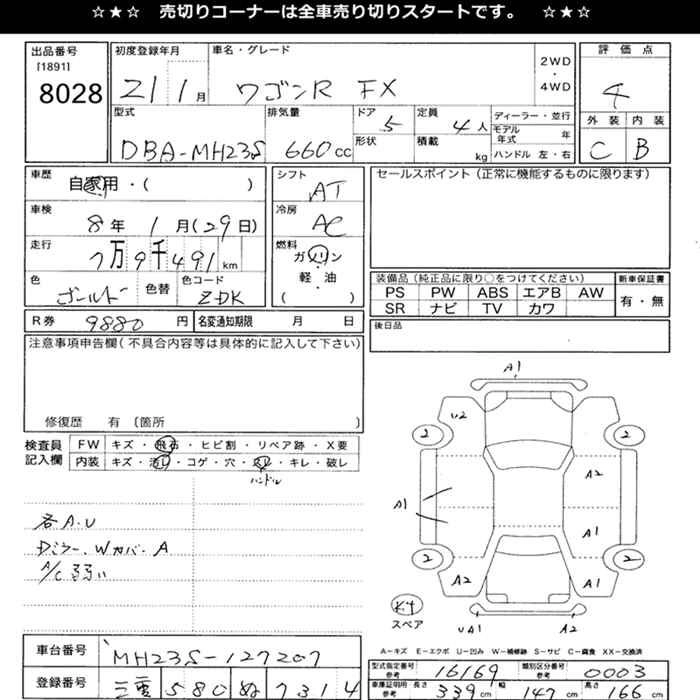 ☆★☆ 売切りコーナーは全車売り切りスタートです。 ☆★☆
出品番号
[1891]
8028
初度登録年月
21 1月
車名・グレード
ワゴンR FX
2WD
・
4WD
評価点
4
外装 内装
C B
型式
DBA-MH23S
排気量
660cc
ドア
5
形状
定員
4人
積載
kg
ディーラー・並行
モデル年式 年
ハンドル 左・右
車歴
自家用・( )
車検
8年 1月(29日)
走行
7万9千491km
色
ゴールド
色替
色コード
ZDK
シフト
AT
冷房
AC
燃料
ガソリン
・
軽・油
( )
セールスポイント(正常に機能するものに限ります)
装備品(純正品に限り○をつけてください)
PS PW ABS エアB AW
SR ナビ TV カワ
新車保証書
有・無
R券 9880円
名変通知期限 月 日
後日品
注意事項申告欄(不具合内容等は具体的に記入して下さい)
修復歴 有 (箇所 )
検査員
記入欄
FW キズ・飛石・ヒビ割・リペア跡・X要
内装 キズ・汚レ・コゲ・穴・スレ・キレ・破レ
ハンドル
各A.U
Dミラー、Wカバー A
A/C 弱い
A1
U2
2
2
A2
A1
A1
2
2
A2
A1
K4
スペア
UA1
A2
A-キズ E-エクボ U-凹み W-補修跡 S-サビ C-腐食 XX-交換済
車台番号
MH23S-127207
登録番号
三重 580 ぬ 7314
型式指定番号
参考
16169
類別区分番号
参考
0003
車庫証明用
参考
長さ 339cm 幅 147cm 高さ 166cm